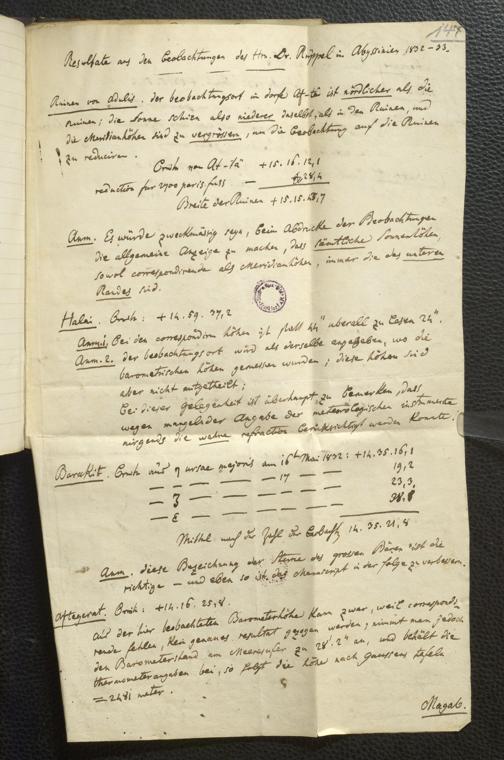 147
Resultate aus den Beobachtungen des Hrn. Dr. Rüppel in Abyssinien 1832-33.
Ruinen von Adulis. der beobachtungsort im dorfe Af-té ist nördlicher als die
ruinen; die Sonne schien also niederer daselbst, als in den Ruinen, und
die Meridianhöhen sind zu vergrössern, um die Beobachtung auf die Ruinen
zu reduciren.
Breite von Af-té +15. 16. 12,1
reduction für 2700 paris. fuss — 28,4
Breite der Ruinen +15. 15. 43,7
Anm. Es würde zweckmässig seyn, beim Abdrucke der Beobachtungen
die allgemeine Anzeige zu machen, dass sämtliche Sonnenhöhen,
sowol correspondirende als Meridianhöhen, immer die des unteren
Randes sind.
Halai. Breite: +14. 59. 37,2
Anm. 1. Bei den correspondirn höhen ist statt 44" uberall zu lesen 24".
Anm. 2. der beobachtungsort wird als derselbe angegeben, wo die
barometrischen höhen gemessen wurden; diese höhen sind
aber nicht mitgetheilt;
bei dieser Gelegenheit ist überhaupt zu bemerken, dass
wegen mangelnder Angabe der meteorologischen instrumente
nirgends die wahre refraction berücksichtigt werden konnte.
Barakit. Breite aus η ursae majoris am 16t Mai 1832: +14. 35. 16,1
— — — — — 17 — — 19,2
— ζ — — — — — 23,3
— ε — — — — —
Mittel nach der Zahl der Beobacht. 14. 35. 21,8
Anm. diese Bezeichnung der Sterne des grossen Bären ist die
richtige — und eben so ist das Manuscript in der folge zu verbessern.
Breite: +14. 16. 25,8.
Aus der hier beobachteten Barometerhöhe kann zwar, weil correspondi-
rende fehlen, kein genaues resultat gezogen werden; nimmt man jedoch
den Barometerstand am Meeresufer zu 28'. 2" an, und behält die
thermometerangaben bei, so folgt die höhe nach Gaussens tafeln
= 2481 meter.